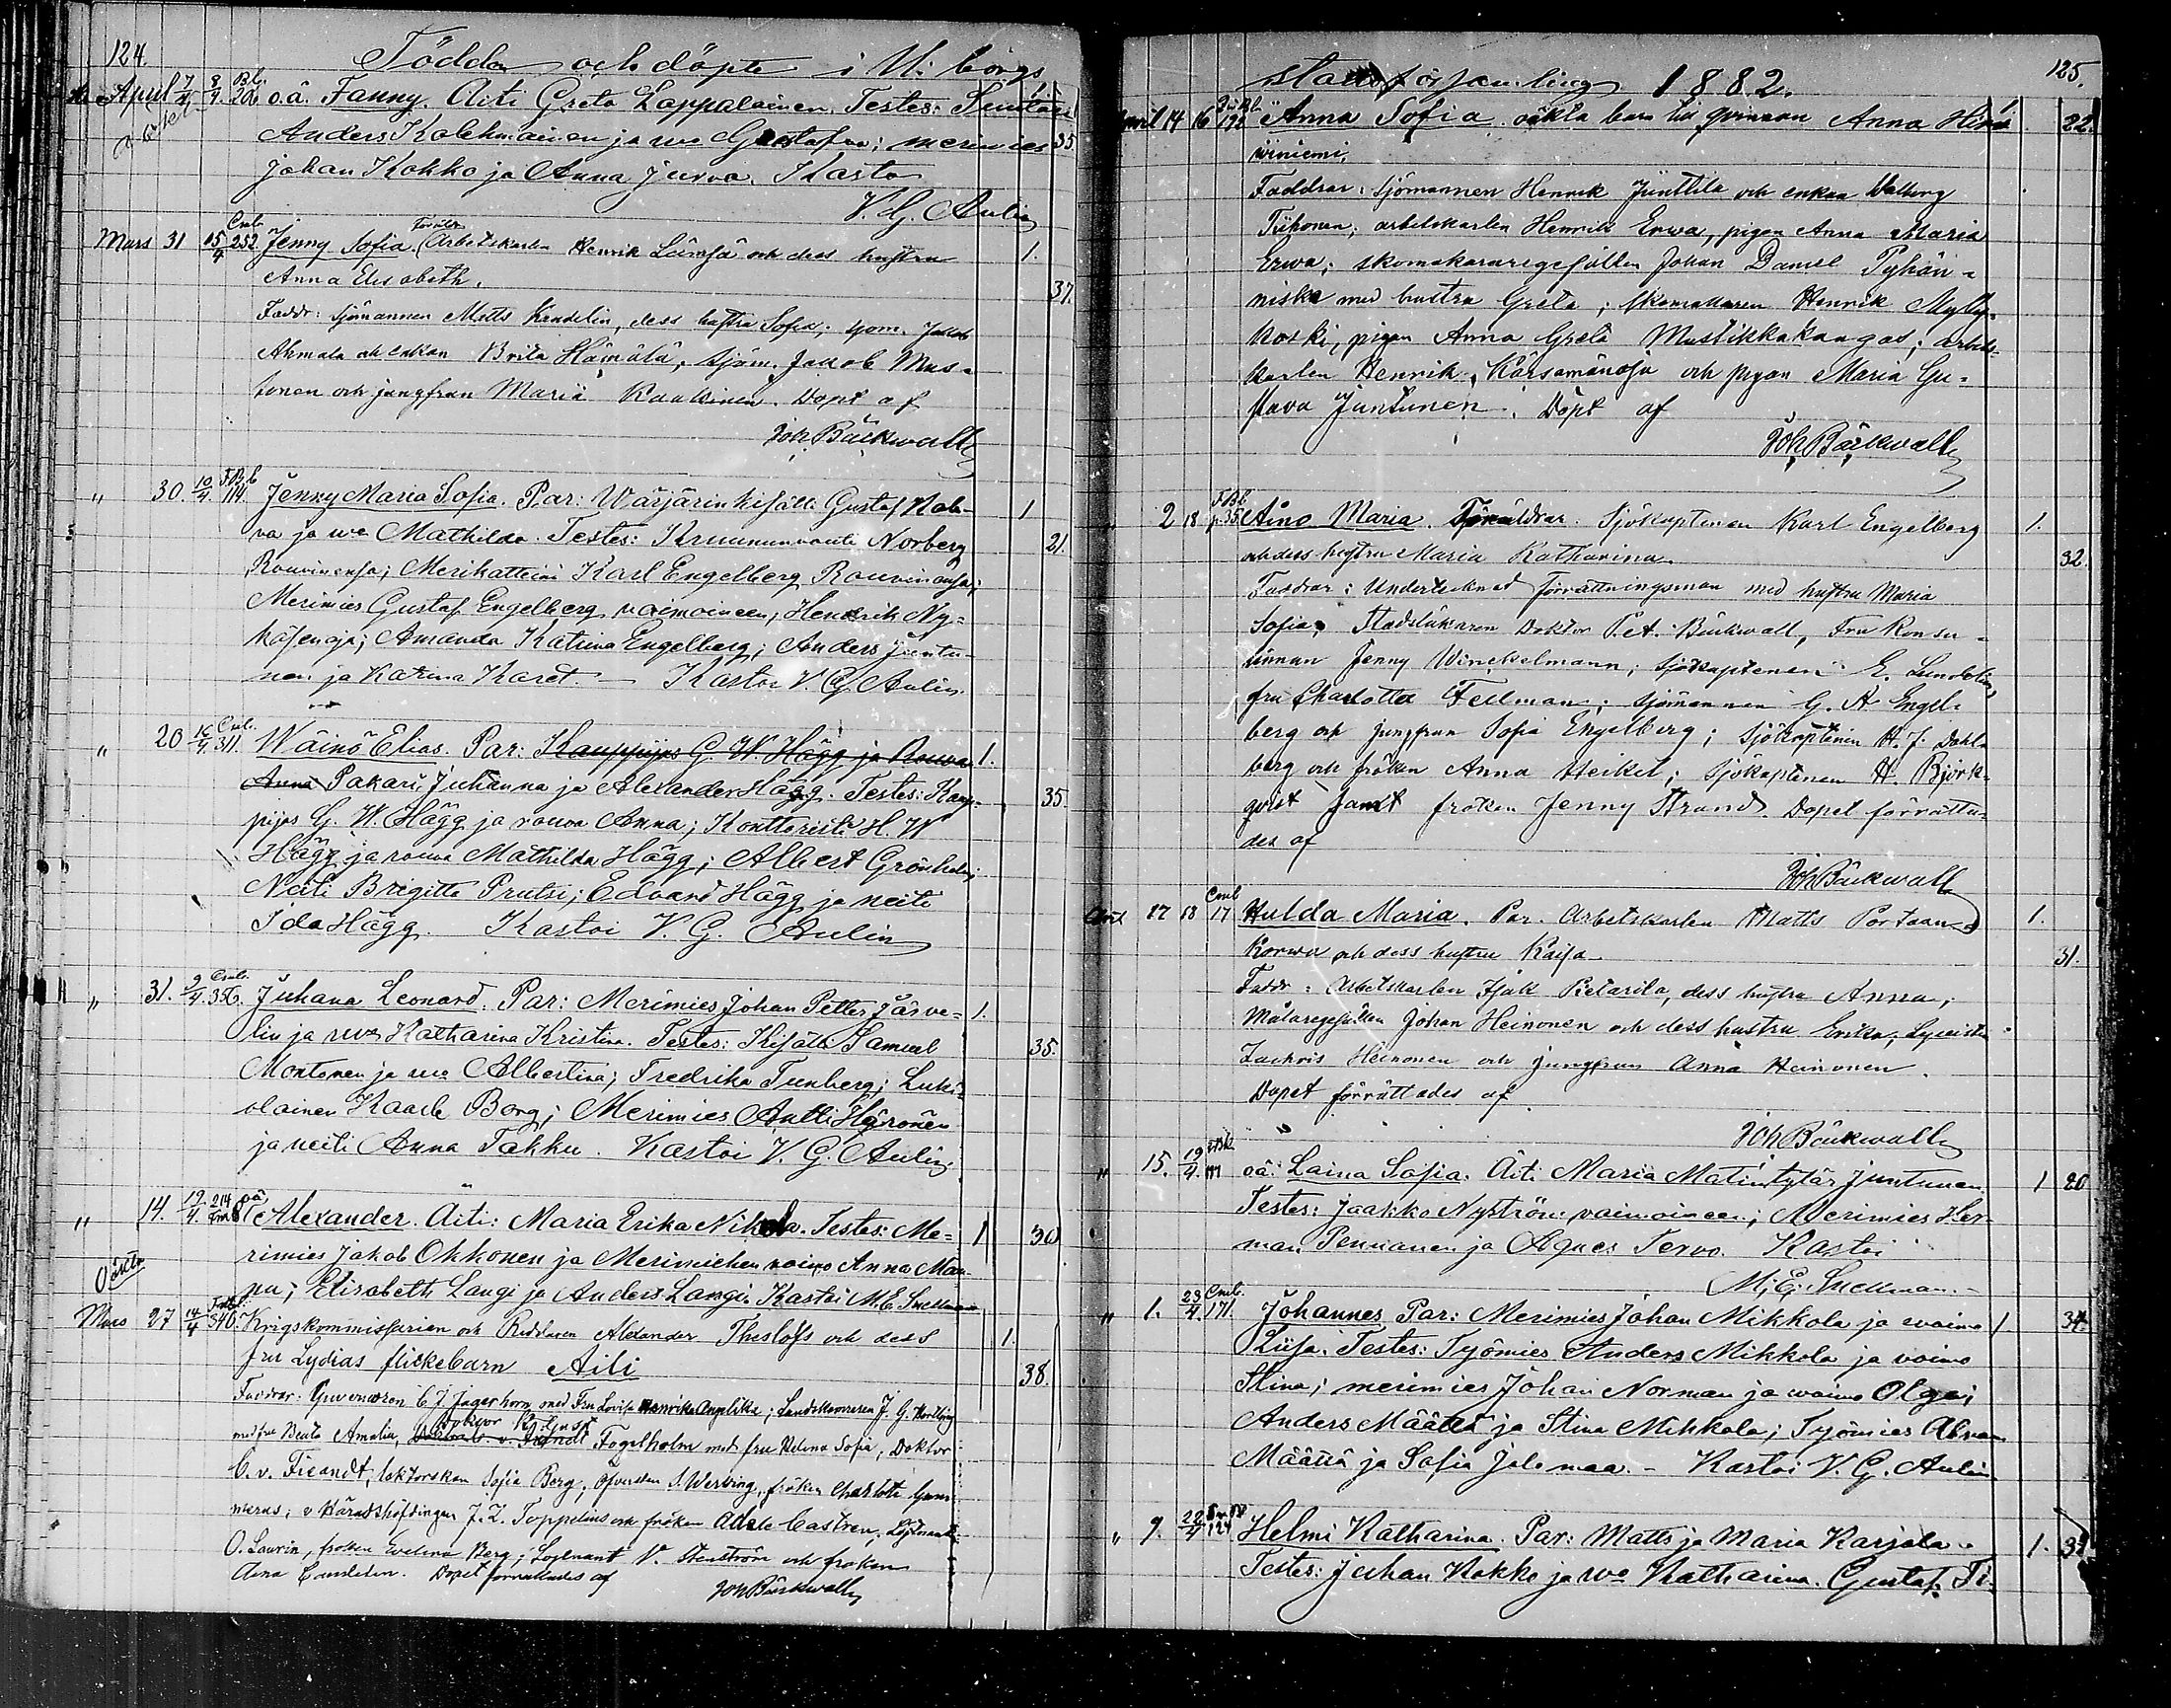 124.
Födda och döpte i Uleåborgs
April 7/4 8/4 Bb. 206 o.ä. Fanny. Äiti Greta Lappalainen. Testes:
Anders Kolehmainen ja wo Gustafva; merimies 35
Johan Kokko ja Anna Jurva. Kastoi
V. G. Aulin
Mars 31 15/4 Cmb. 252. Jenny Sofia. Föräldr. Arbetskarlen Henrik Lämsä och dess hustru 1.
Anna Elisabeth. 37.
Faddr: Sjömannen Matts Kandelin, dess hustru Sofia; sjöm. Jakob
Ahmala och enkan Brita Hämälä, sjöm. Jakob Mus-
tonen och jungfrun Maria Raakinen. Döpt af
Joh. Bäckwall
" 30. 10/4. F.B.b 114. Jenny Maria Sofia. Par: Wärjärin kisälli Gustaf Hal-
va ja wo Mathilda. Testes: Kruununvouti Norberg 21.
Rouvinensa; Merikatteini Karl Engelberg Rouvinensa;
Merimies Gustaf Engelberg vaimoineen; Hendrik Ny-
käsenoja; Amanda Katrina Engelberg; Anders Juntu-
nen ja Katrina Karet. — Kastoi V. G. Aulin.
" 20 16/4 Cmb. 311. Wäinö Elias. Par: Kauppijas G. W. Hägg ja Rouva 1.
Anna Pakari Juhanna ja Alexander Hägg. Testes: Kaup- 35.
pijas G. W. Hägg ja rouva Anna; Konttoristi H. W
Hägg ja rouva Mathilda Hägg; Albert Grönholm;
Neiti Brigitta Prutsi; Edvard Hägg ja neiti
Ida Hägg. Kastoi V. G. Aulin
" 31. 9/4. Cmb. 356. Juhana Leonard. Par: Merimies Johan Petter Järve- 1.
lin ja wo Katharina Kristina. Testes: Kisälli Samuel 35.
Montonen ja wo Albertina; Fredrika Tunberg; Luki-
olainen Kaarle Borg; Merimies Antti Härönen
ja neiti Anna Takku. Kastoi V. G. Aulin.
" 14. 19/4. 214 oä Alexander. Äiti: Maria Erika Nikola. Testes: Me- 1 30
rimies Jakob Okkonen ja Merimiehen vaimo Anna Man-
nu; Elisabeth Langi ja Anders Langi. Kastoi M. E. Snellman
Oäkta
Mars 27 14/4 346. Krigskommissarien och Riddaren Alexander Thesloffs och dess 1.
fru Lydias flickebarn Aili 38.
Faddrar: Guvernören C. J. Jägerhorn med Fru Lovisa Henrika Angelika; Landskamreren J. G.
med fru Beata Amalia, Fogelholm med fru Helena Sofia, Doktor
C. v. Fieandt, doktorskan Sofia Borg; fröken Charlotte Gum-
merus; v. Häradshöfdingen J. L. Toppelius och fröken Adele Castren, Löjtnant
O. Laurin, fröken Evelina Berg; Löjtnant V. Stenström och fröken
Aina Dopet förrättades af
Joh Bäckwall
125.
stadsförsamling 1882.
April 14 16 198 Anna Sofia oäkta barn till qvinnan Anna 1 22.
winiemi.
Faddrar: Sjömannen Henrik Junttila och enkan Walborg
Tiihonen; arbetskarlen Henrik Erwa, pigan Anna Maria
Erwa; skomakaregesällen Johan Daniel Pyhän-
niska med hustru Greta; skomakaren Henrik Mylly-
koski, pigan Anna Greta Mustikkakangas; arbets-
karlen Henrik Kärsämänoja och pigan Maria Gu-
stava Juntunen. Döpt af
Joh Bäckwall
" 2 18 F.Bb. p. 35. Aino Maria. Föräldrar. Sjökaptenen Karl Engelberg 1.
och dess hustru Maria Katharina. 32.
Faddrar: Undertecknad förrättningsman med hustru Maria
Sofia; Stadsläkaren Doktor P. A. Bäckwall, Fru Konsu-
linnan Jenny Winckelmann; Sjökaptenen E.
fru Charlotta Fellman; sjömannen G. A. Engel-
berg och jungfrun Sofia Engelberg; Sjökaptenen H. J. Dahl-
berg och fröken Anna Heikel; Sjökaptenen H. Björk-
qvist samt fröken Jenny Strand. Dopet förrätta-
des af
Joh Bäckwall
April 17 18 Cmb 17 Hulda Maria. Par. Arbetskarlen Matts Portaan- 1.
Korwa och dess hustru Kaisa 31.
Faddr: Arbetskarlen Isak Pietarila, dess hustru Anna;
Målaregesällen Johan Heinonen och dess hustru Erika; Lyceisten
Zachris Heinonen och jungfrun Anna Heinonen.
Dopet förrättades af
Joh Bäckwall
" 15. 19/4. oä: Laina Sofia. Äiti Maria Matintytär Juntunen 1 20
Testes: Jaakko Nyström vaimoineen; Merimies Her-
man Pennanen ja Agnes Tervo. Kastoi
M. E. Snellman.
" 1. 23/4. Cmb. 171. Johannes. Par: Merimies Johan Mikkola ja waimo 1. 34.
Liisa. Testes: Työmies Anders Mikkola ja vaimo
Stina; merimies Johan Norman ja waimo Olga;
Anders Määttä ja Stina Mikkola; Työmies Abram
Määttä ja Sofia Jolomaa. - Kastoi V. G. Aulin
" 9. 22/4 124. Helmi Katharina. Par: Matts ja Maria Karjala. 1. 39
Testes: Juhan Kokko ja wo Katharina. Gustaf Ti-